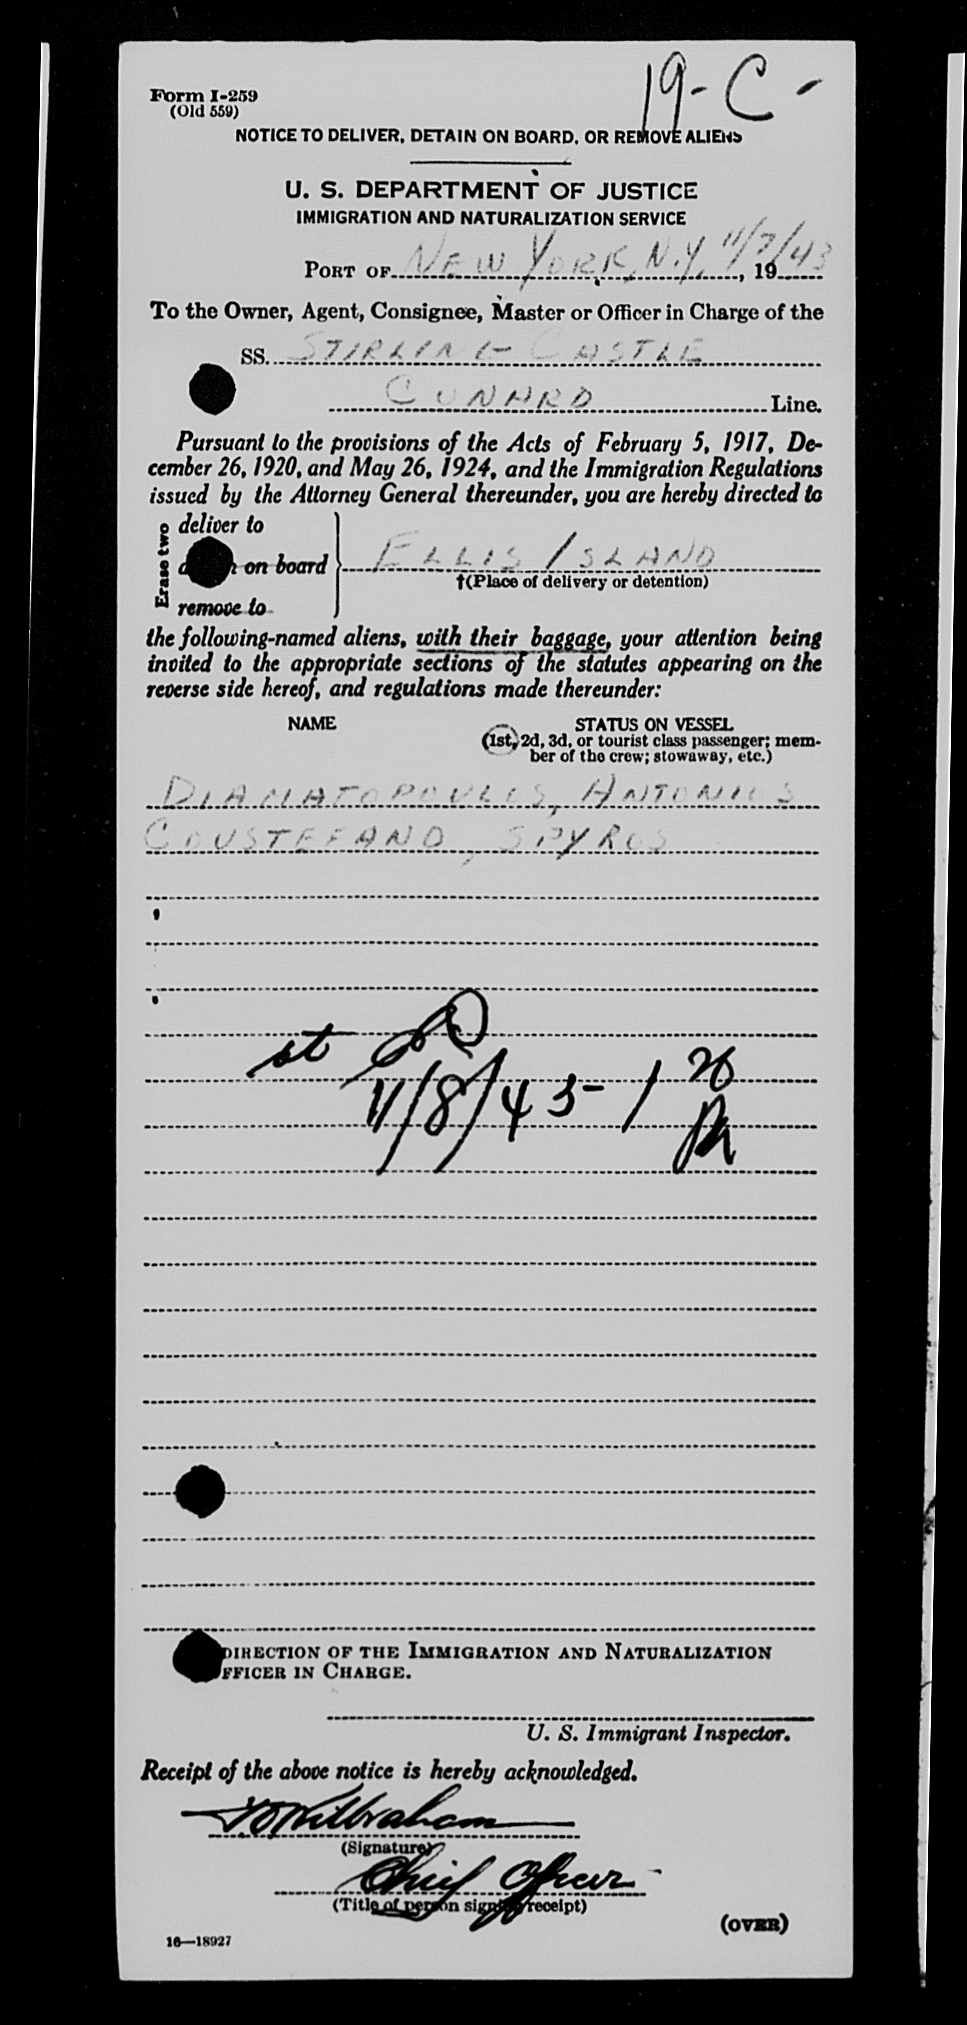 19-C-
Form I-259
(Old 559)
NOTICE TO DELIVER, DETAIN ON BOARD, OR REMOVE ALIENS
U. S. DEPARTMENT OF JUSTICE
IMMIGRATION AND NATURALIZATION SERVICE
PORT OF NEW YORK, N.Y. 11/7/43, 19
To the Owner, Agent, Consignee, Master or Officer in Charge of the
SS. STIRLING CASTLE
CUNARD Line.
Pursuant to the provisions of the Acts of February 5, 1917, De-
cember 26, 1920, and May 26, 1924, and the Immigration Regulations
issued by the Attorney General thereunder, you are hereby directed to
Erase two
deliver to
on board
remove to
ELLIS ISLAND
†(Place of delivery or detention)
the following-named aliens, with their baggage, your attention being
invited to the appropriate sections of the statutes appearing on the
reverse side hereof, and regulations made thereunder:
NAME STATUS ON VESSEL
(1st, 2d, 3d, or tourist class passenger; mem-
ber of the crew; stowaway, etc.)
DIAMATOPOULOS, ANTONIOS
COUSTEFAND, SPYROS
11/8/43-1
DIRECTION OF THE IMMIGRATION AND NATURALIZATION
OFFICER IN CHARGE.
U. S. Immigrant Inspector.
Receipt of the above notice is hereby acknowledged.
Wilbraham
(Signature)
Chief Officer
(Title of person signing receipt)
(OVER)
16—18927